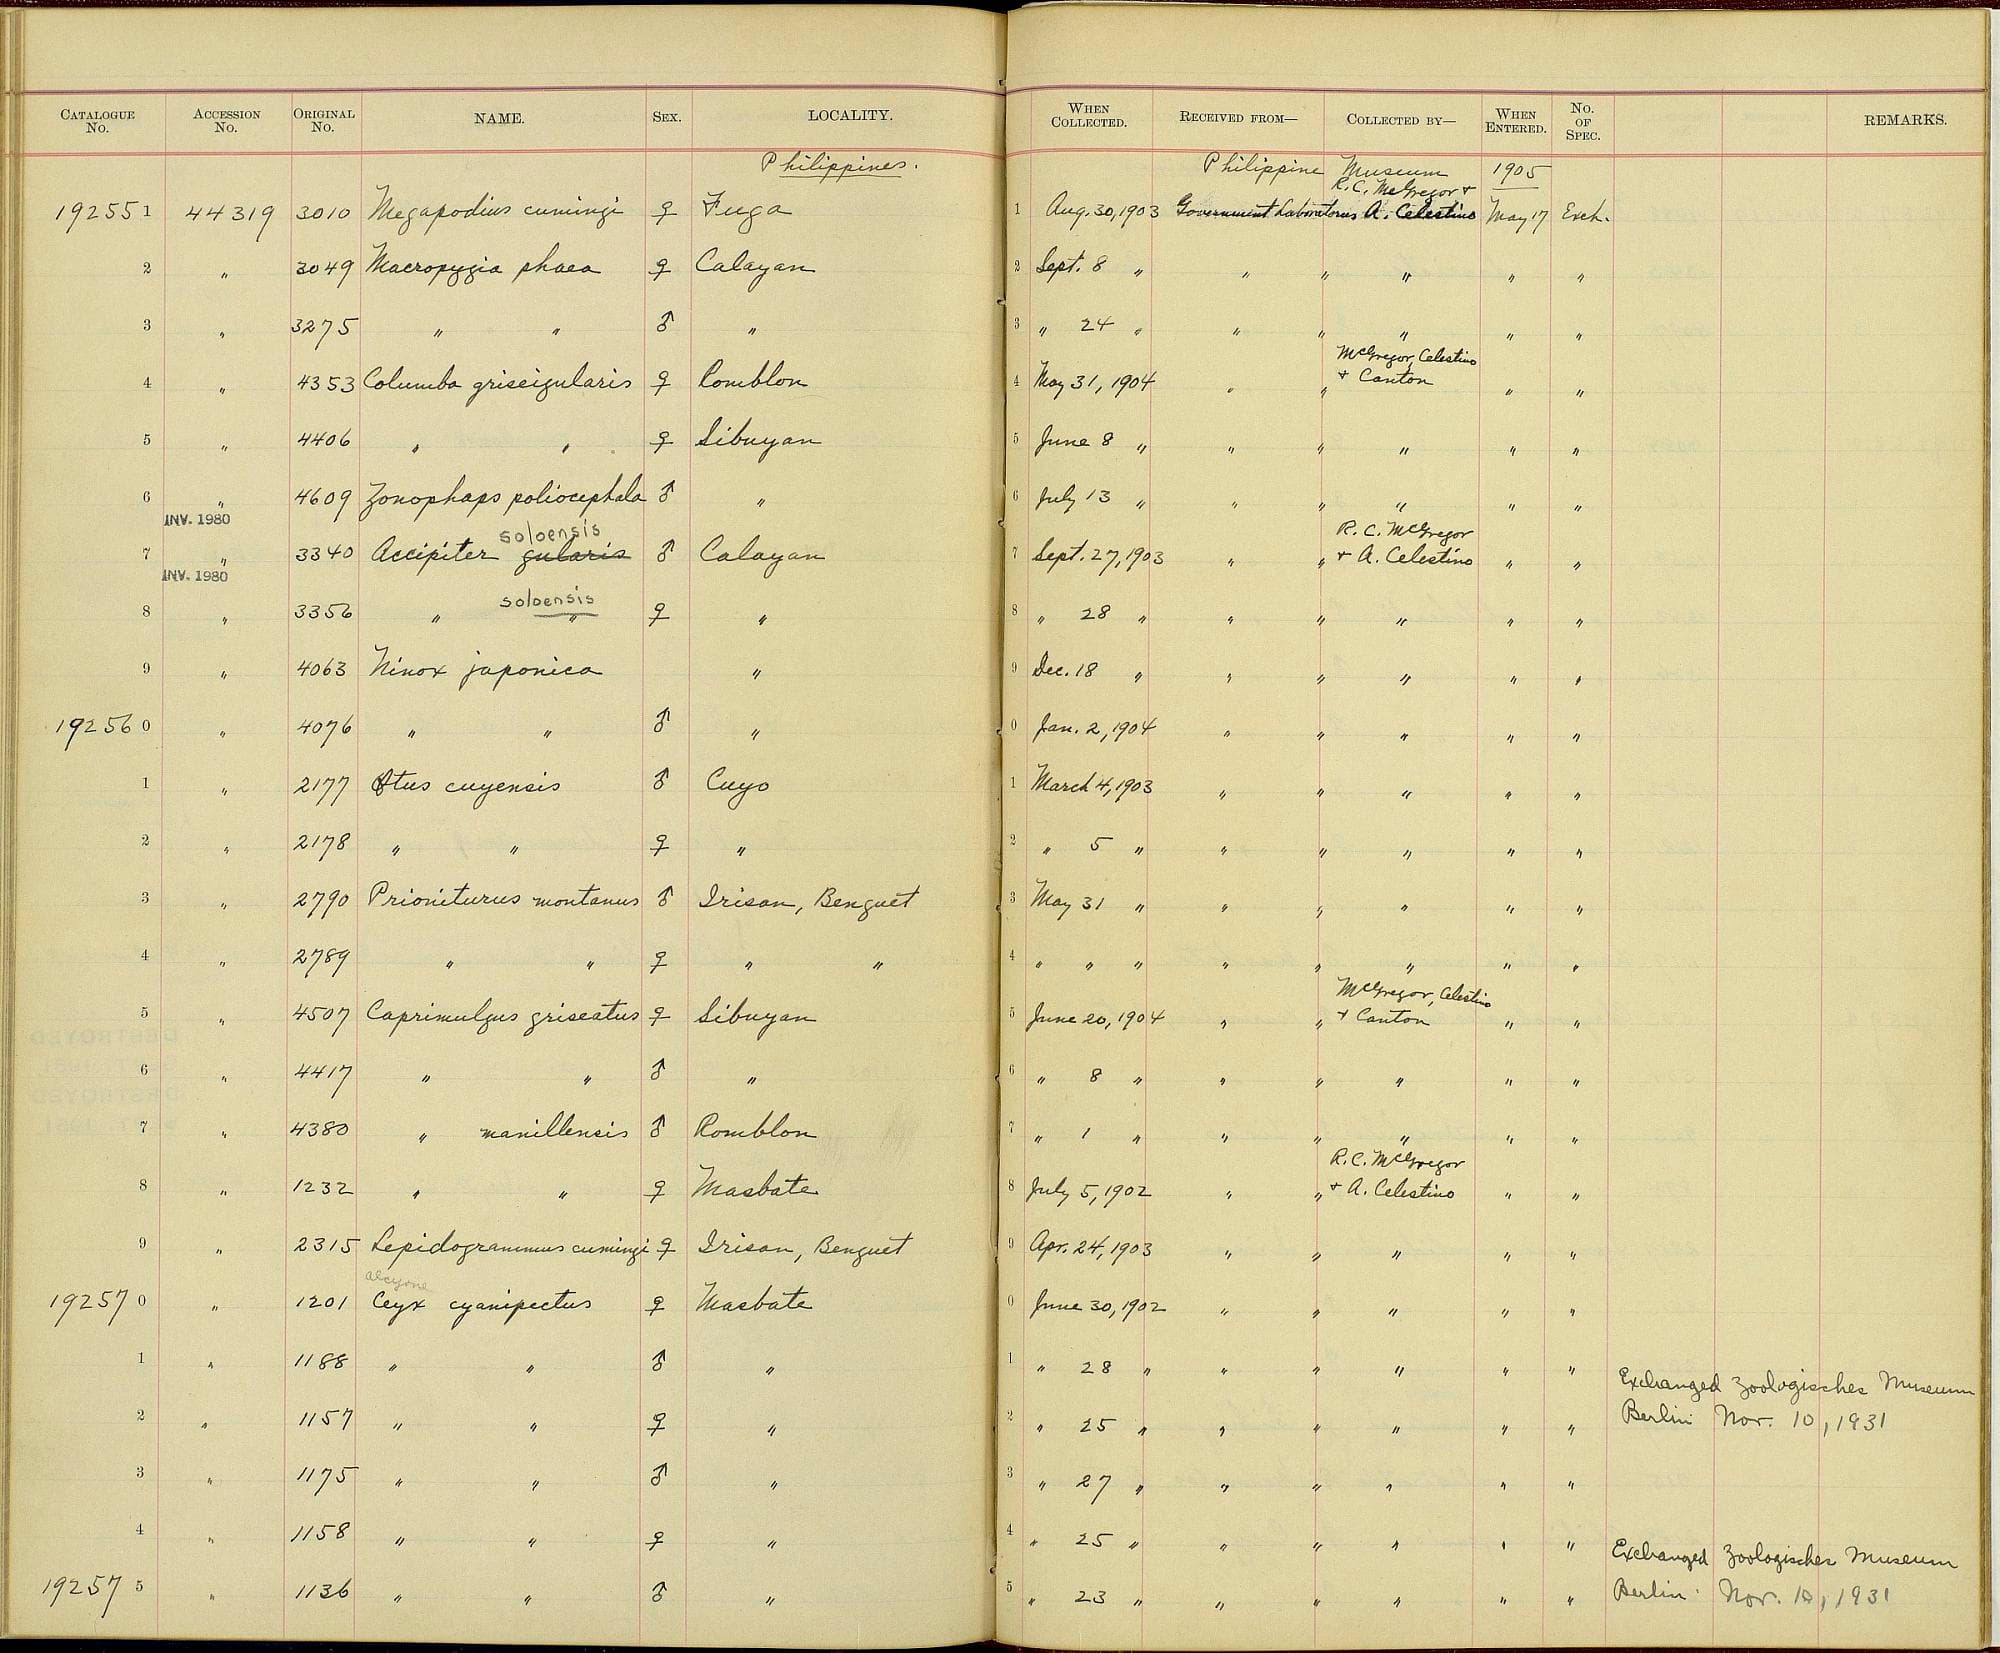 CATALOGUE No. ACCESSION No. ORIGINAL No. NAME. SEX. LOCALITY. WHEN COLLECTED. RECEIVED FROM— COLLECTED BY— WHEN ENTERED. No. OF SPEC. REMARKS.
Philippines. Philippine Museum 1905
R. C. McGregor +
19255 1 44319 3010 Megapodius cumingi ♀ Fuga 1 Aug. 30, 1903 Government Laboratories A. Celestino May 17 Exch.
2 " 3049 Macropygia phaea ♀ Calayan 2 Sept. 8 " " " " " "
3 " 3275 " " ♂ " 3 " 24 " " " " " "
McGregor, Celestino
4 " 4353 Columba griseigularis ♀ Romblon 4 May 31, 1904 " " + Canton " "
5 " 4406 " " ♀ Sibuyan 5 June 8 " " " " " "
6 " 4609 Zonophaps poliocephala ♂ " 6 July 13 " " " " " "
INV. 1980 soloensis R. C. McGregor
7 " 3340 Accipiter gularis ♂ Calayan 7 Sept. 27, 1903 " " + A. Celestino " "
INV. 1980 soloensis
8 " 3356 " " ♀ " 8 " 28 " " " " " "
9 " 4063 Ninox japonica " 9 Dec. 18 " " " " " "
19256 0 " 4076 " " ♂ " 0 Jan. 2, 1904 " " " " "
1 " 2177 Otus cuyensis ♂ Cuyo 1 March 4, 1903 " " " " "
2 " 2178 " " ♀ " 2 " 5 " " " " " "
3 " 2790 Prioniturus montanus ♂ Irisan, Benguet 3 May 31 " " " " " "
4 " 2789 " " ♀ " " 4 " " " " " " " "
McGregor, Celestino
5 " 4507 Caprimulgus griseatus ♀ Sibuyan 5 June 20, 1904 " " + Canton " "
6 " 4417 " " ♂ " 6 " 8 " " " " " "
7 " 4380 " manillensis ♂ Romblon 7 " 1 " " " " " "
R. C. McGregor
8 " 1232 " " ♀ Masbate 8 July 5, 1902 " " + A. Celestino " "
9 " 2315 Lepidogrammus cumingi ♀ Irisan, Benguet 9 Apr. 24, 1903 " " " " "
alcyone
19257 0 " 1201 Ceyx cyanipectus ♀ Masbate 0 June 30, 1902 " " " " "
1 " 1188 " " ♂ " 1 " 28 " " " " " "
Exchanged Zoologisches Museum
2 " 1157 " " ♀ " 2 " 25 " " " " " " Berlin Nov. 10, 1931
3 " 1175 " " ♂ " 3 " 27 " " " " " "
4 " 1158 " " ♀ " 4 " 25 " " " " " "
Exchanged Zoologisches Museum
19257 5 " 1136 " " ♂ " 5 " 23 " " " " " " Berlin: Nov. 10, 1931